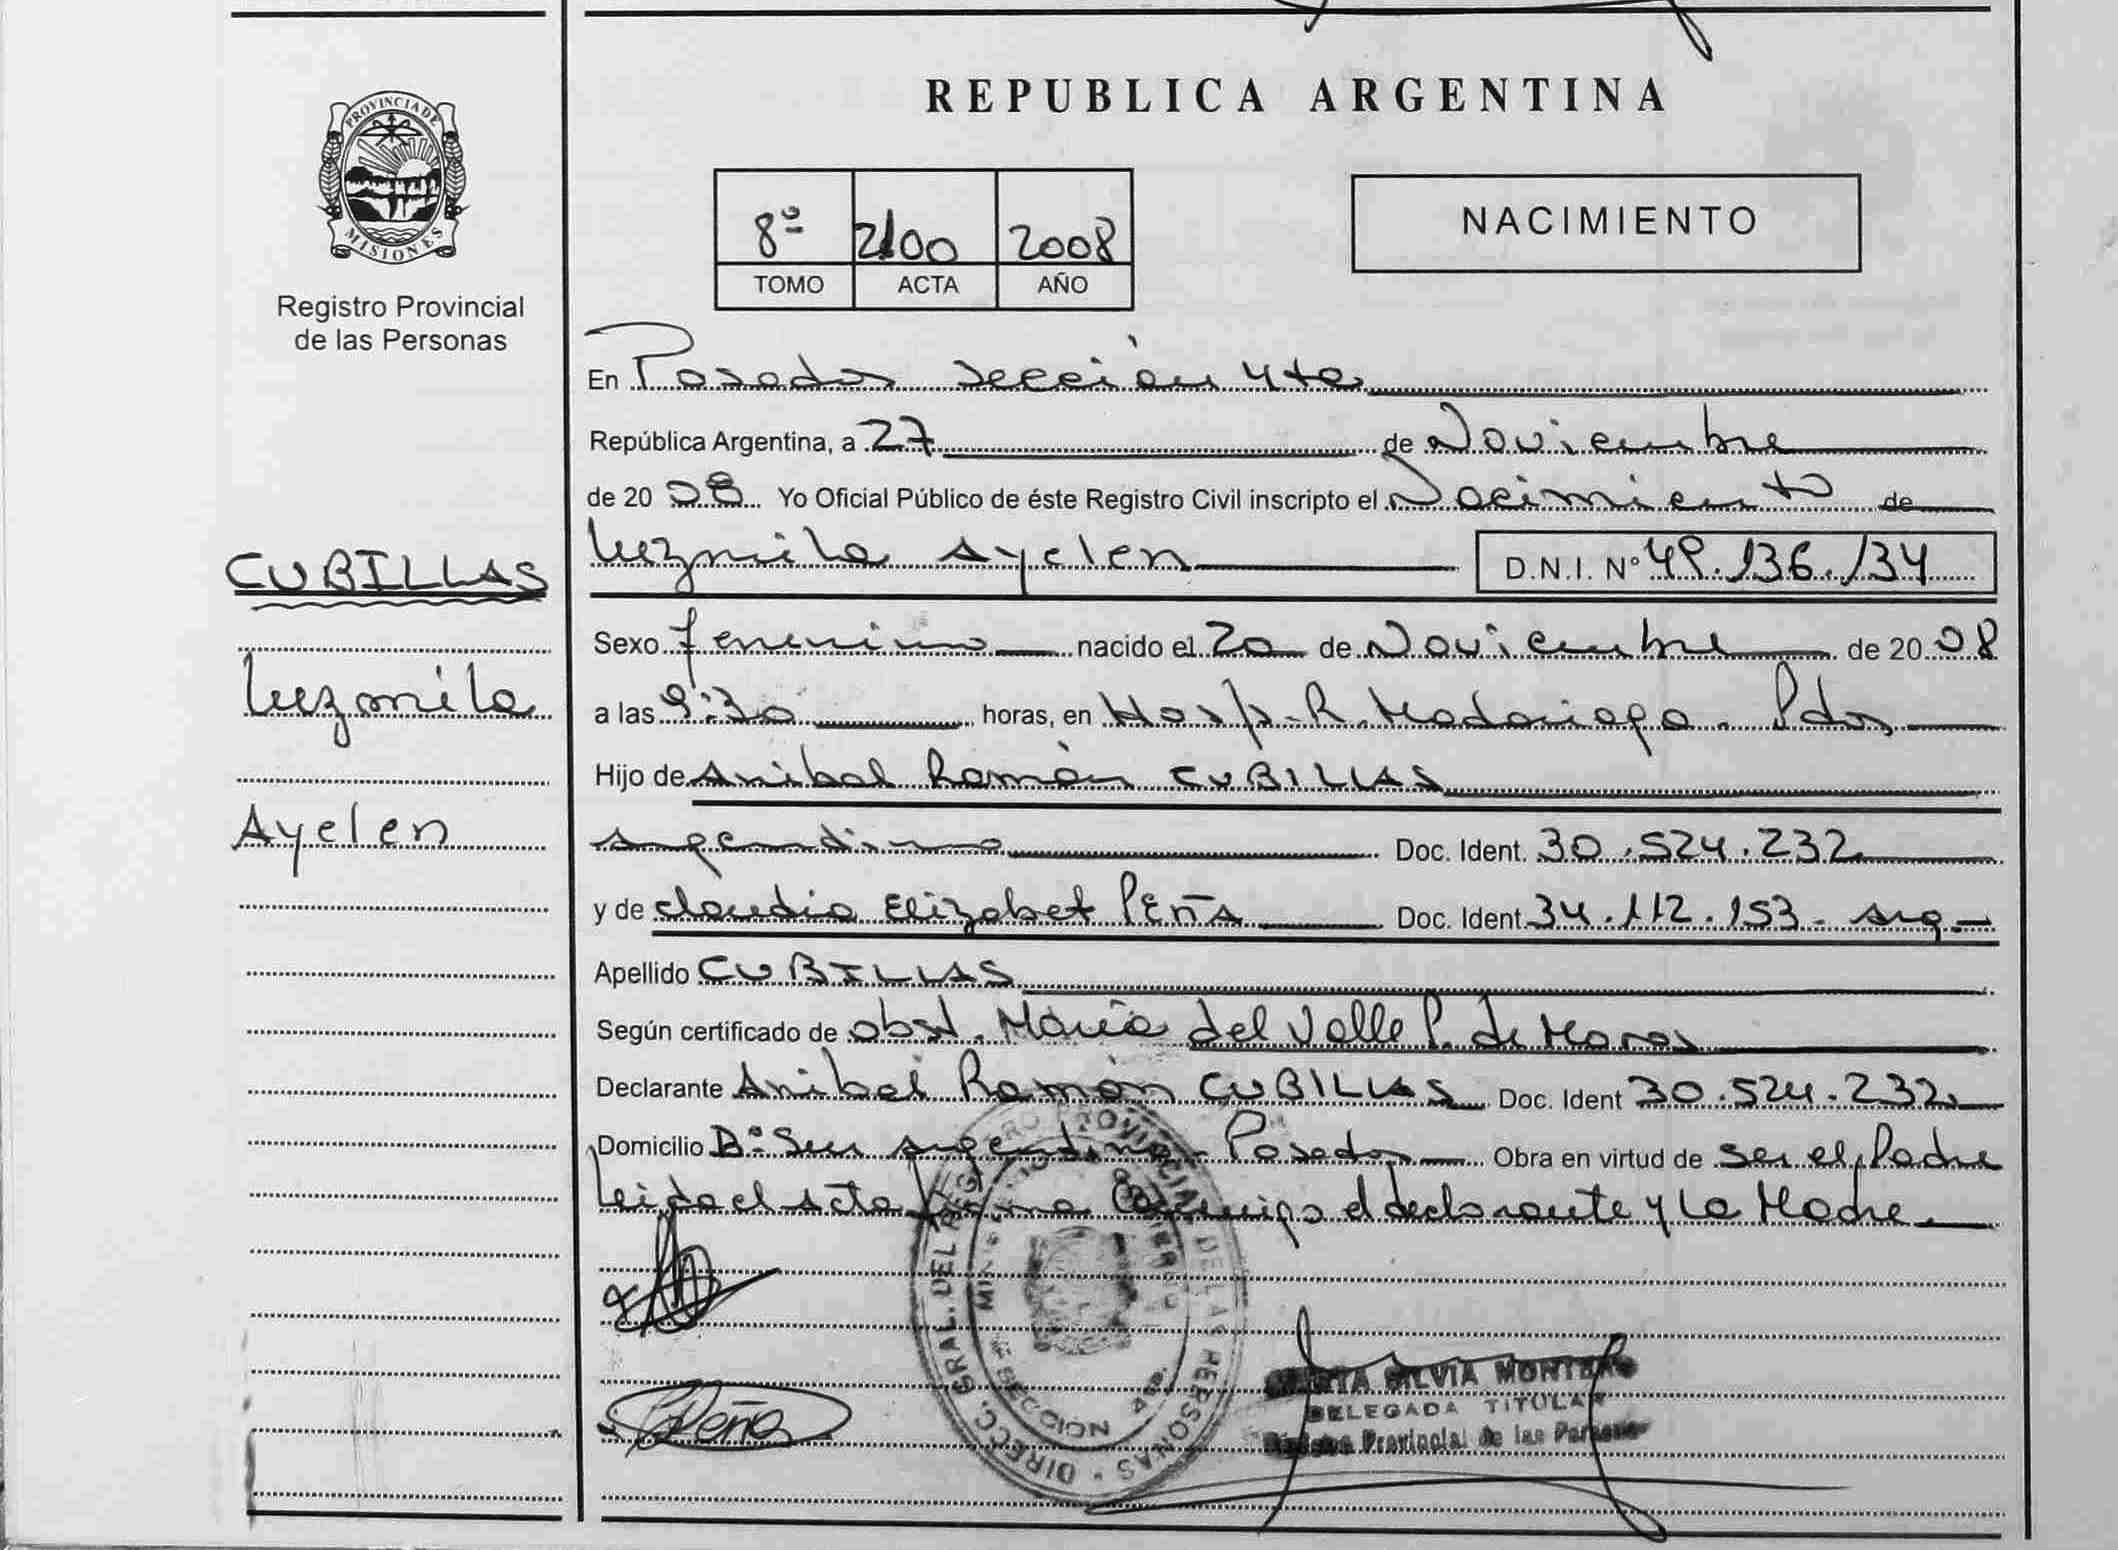 REPUBLICA ARGENTINA
PROVINCIA DE
MISIONES
Registro Provincial
de las Personas
8º 2100 2008
TOMO ACTA AÑO
NACIMIENTO
En Posadas sección 4ta
República Argentina, a 27 de Noviembre
de 20 08 Yo Oficial Público de éste Registro Civil inscripto el Nacimiento de
CUBILLAS
Luzmila Ayelen D.N.I. Nº 49.136.134
Sexo femenino nacido el 20 de Noviembre de 20 08
Luzmila
a las 9:30 horas, en Hosp. R. Madariaga - Pdas
Hijo de Anibal Ramón CUBILLAS
Ayelen
argentino Doc. Ident. 30.524.232
y de Claudia Elizabet PEÑA Doc. Ident. 34.112.153 - arg -
Apellido CUBILLAS
Según certificado de obst. María del Valle P. de Moras
Declarante Anibal Ramón CUBILLAS Doc. Ident 30.524.232
Domicilio Bº Sur argentino - Posadas Obra en virtud de ser el Padre
leida el acta firma conmigo el declarante y La Madre.
DIRECC. GRAL. DEL REGISTRO PROVINCIAL DE LAS PERSONAS
Peña
SILVIA MONTERO
DELEGADA TITULAR
Registro Provincial de las Personas